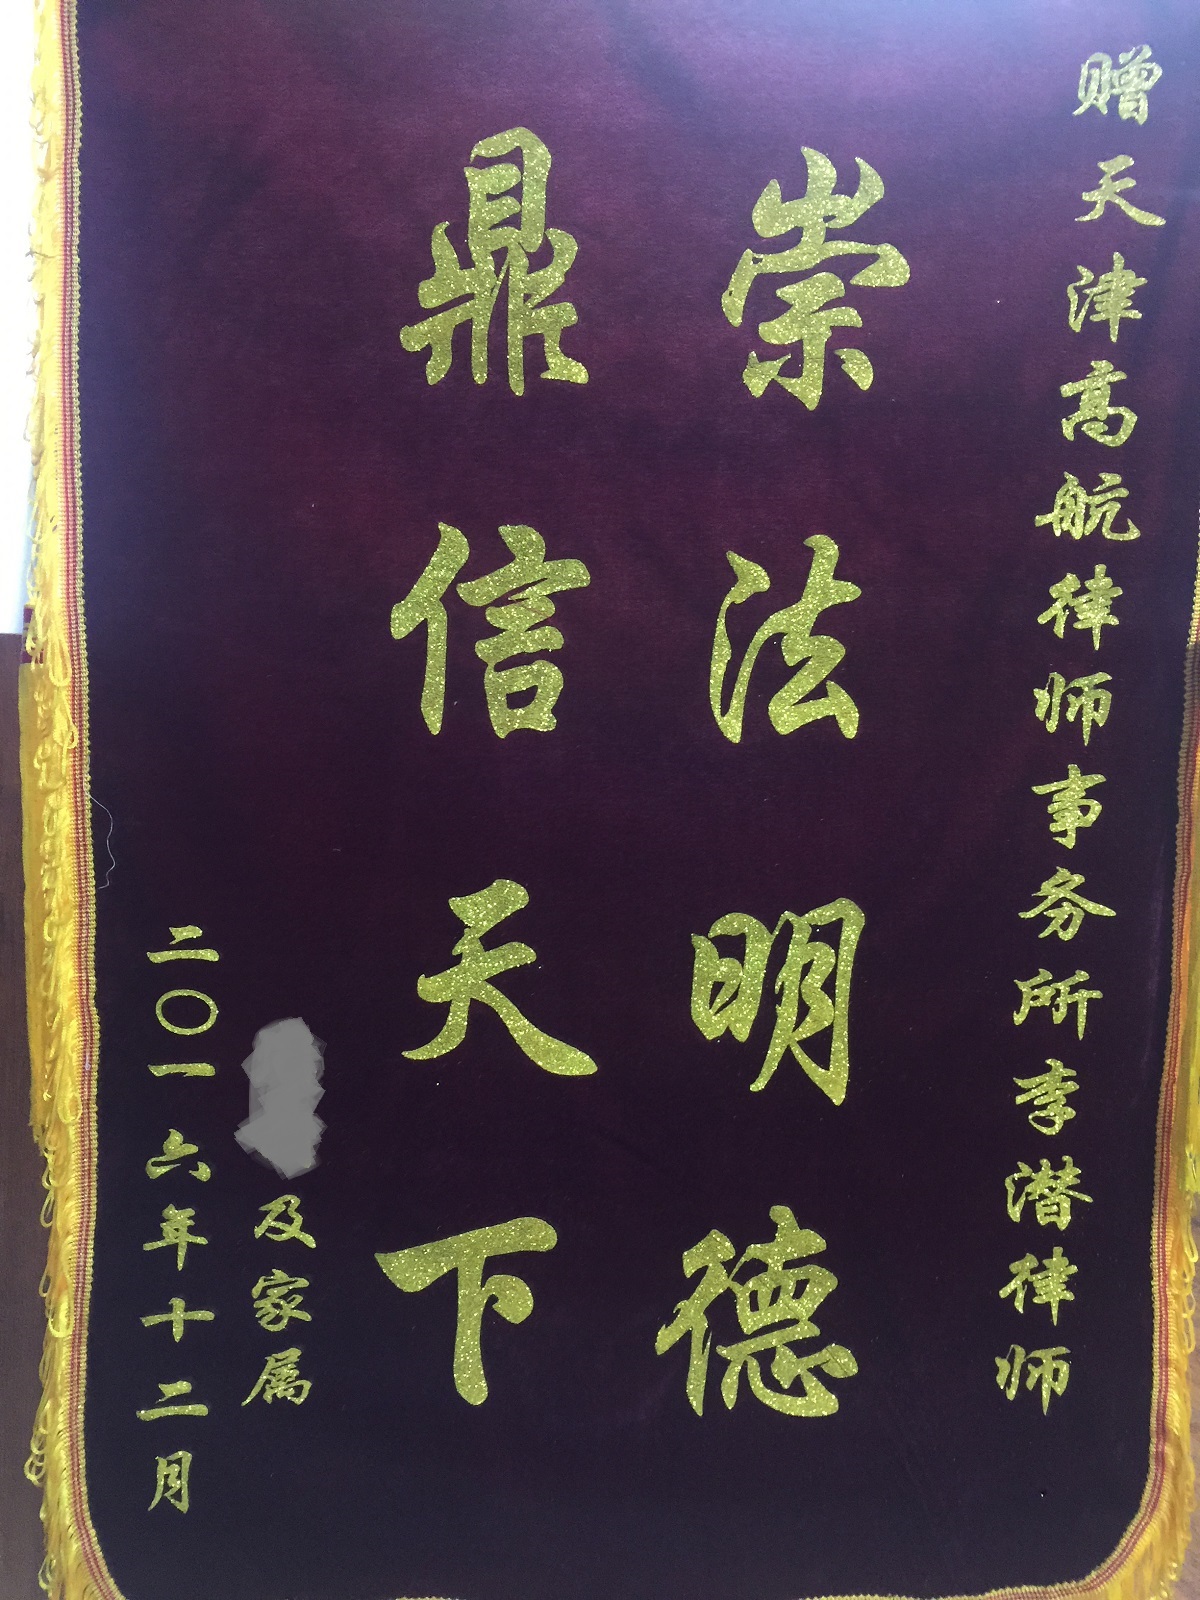 赠天津高航律师事务所李潜律师
崇法明德
鼎信天下
及家属
二〇一六年十二月